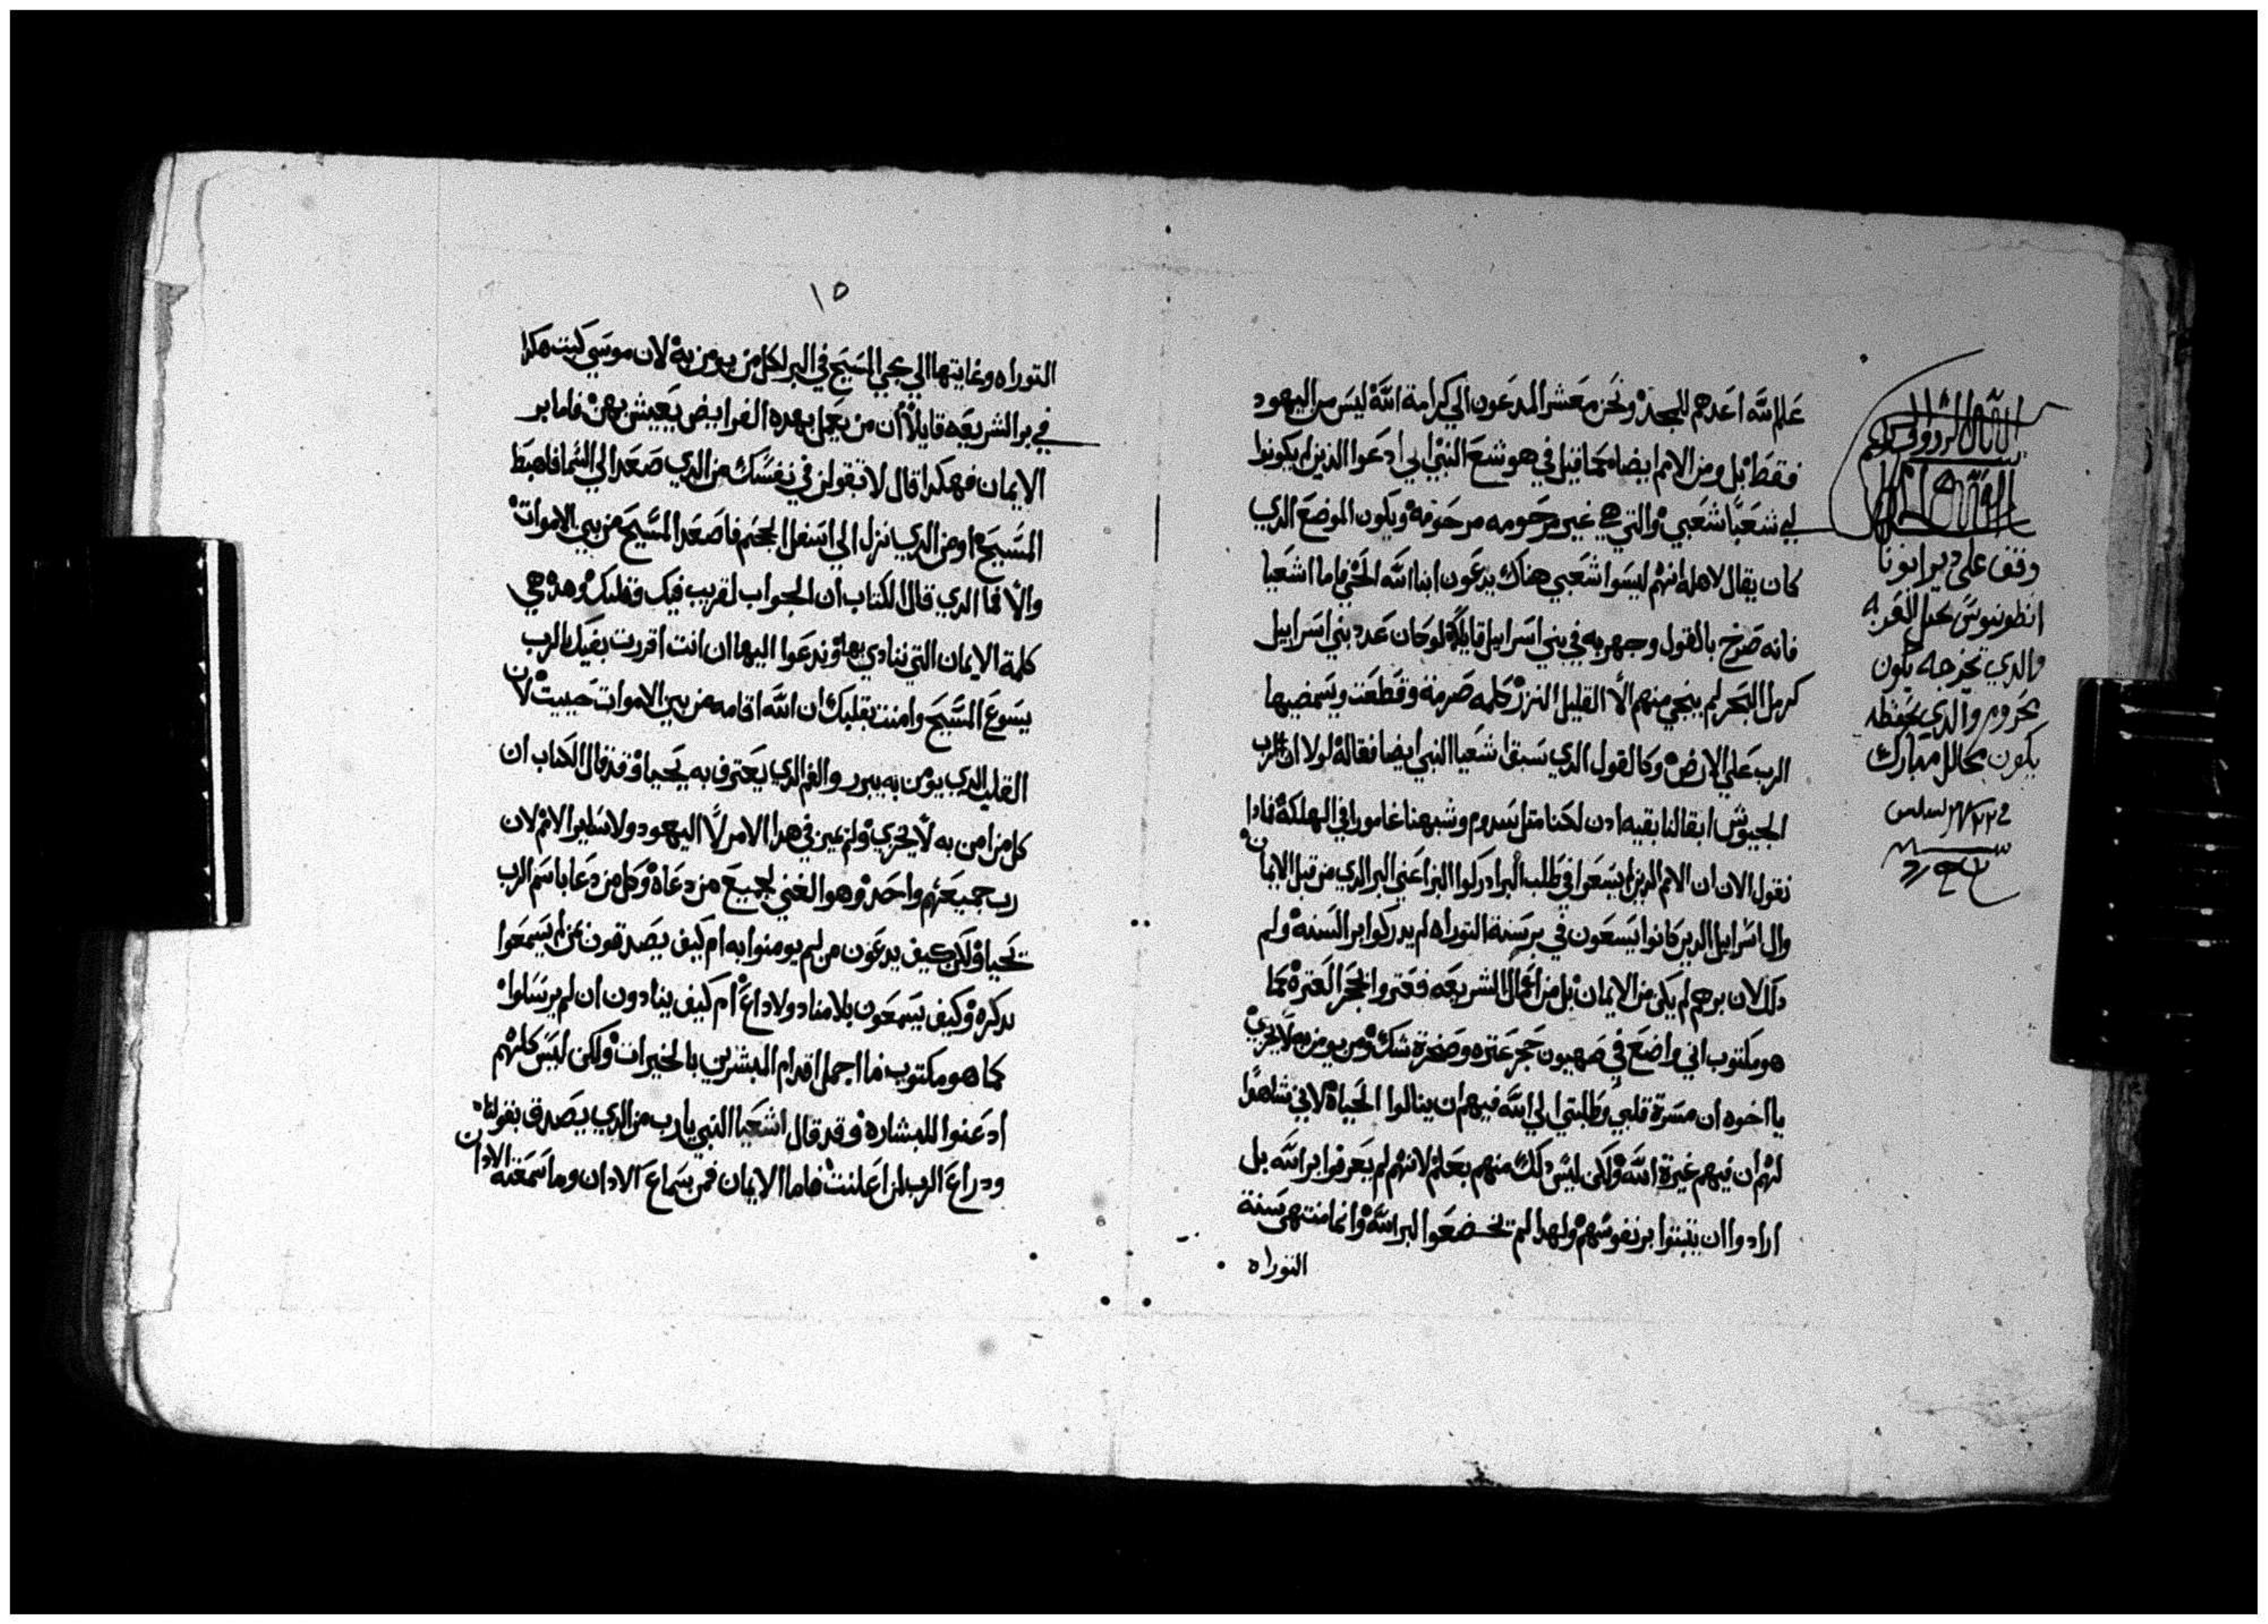 علم الله اعدهم للمجد ونحن معشر المدعون الي كرامة الله ليس من اليهود
فقط بل ومن الامم ايضا كما قيل في هوشع النبي اني ادعوا الذين لم يكونوا
لي شعبا شعبي والتي هي غير مرحومه مرحومة ويكون الموضع الدي
كان يقال لاهله انهم ليسوا شعبي هناك يدعون ابنا الله الحي فاما اشعيا
فانه صرخ بالقول وجهر به في بني اسراييل قايلا لو كان عدد بني اسراييل
كرمل البحر لم ينجي منهم الا القليل النزر كلمه صرمة وقطعت ويسمضيها
الرب علي الارض وكالقول الدي سبق اشعيا النبي ايضا فقالة لولا ان الرب
الجيوش ابقا لنا بقيه ادن لكنا مثل سدوم وشبهنا غامورا في الهلكة فادا
نقول الان ان الامم الدين لم يسعوا في طلب البر ادركوا البر اعني البر الدي من قبل الايمان
وال اسراييل الدين كانوا يسعون في بر سنة التوراه لم يدركوا بر السنة ولم
دلك لان برهم لم يكن من الايمان بل من اعمال الشريعه فعتروا بحجر العترة كما
هو مكتوب اني واضع في صهيون حجر عتره وصخرة شك ومن يومن به لا يخزي
يا اخوه ان مسرة قلبي وطلبتي الي الله فيهم ان ينالوا الحياة لاني شاهدا
لهم ان فيهم غيرة الله ولكن ليس دلك منهم بعلم لانهم لم يعرفوا بر الله بل
ارادوا ان يثبتوا بر نفوسهم ولهدا لم تخضعوا لبر الله وانما منتهي سنة
التوراه
وقف علي دير ابونا
انطونيوس بجبل العربه
والدي يخرجه يكون
محروم والدي يحفظه
يكون محالل مبارك
١٥
التوراه وغايتها الي مجي المسيح في البر لكل من يومن به لان موسي كتب هكدا
في بر الشريعه قايلا ان من يعمل بهده الفرايض يعيش بهن فاما بر
الايمان فهكدا قال لا تقولن في نفسك من الدي صعد الي السما فاهبط
المسيح او من الدي نزل الي اسفل الجحيم فاصعد المسيح من بين الاموات
والا فما الدي قال الكتاب ان الجواب لقريب فيك وقلبك وهده هي
كلمة الايمان التي ننادي بها وندعوا اليها ان انت اقررت بفيك بالرب
يسوع المسيح وامنت بقلبك ان الله اقامه من بين الاموات حييت لان
القلب الدي يومن به يبرر والفم الدي يعترف به يحيا وقد قال الكتاب ان
كل من امن به لا يخزي ولم يميز في هدا الامر لا اليهود ولا ساير الامم لان
رب جميعهم واحد وهو الغني لجميع من دعاه وكل من دعا باسم الرب
يحيا ولكن كيف يدعون من لم يومنوا به ام كيف يصدقون بمن لم يسمعوا
بدكره وكيف يسمعون بلا مناد ولا داع ام كيف ينادون ان لم يرسلوا
كما هو مكتوب ما اجمل اقدام المبشرين بالخيرات ولكن ليس كلهم
ادعنوا للبشاره وقد قال اشعيا النبي يا رب من الدي يصدق بقولنا
ودراع الرب لمن اعلنت فاما الايمان فمن سماع الادان وما سمعته الادان